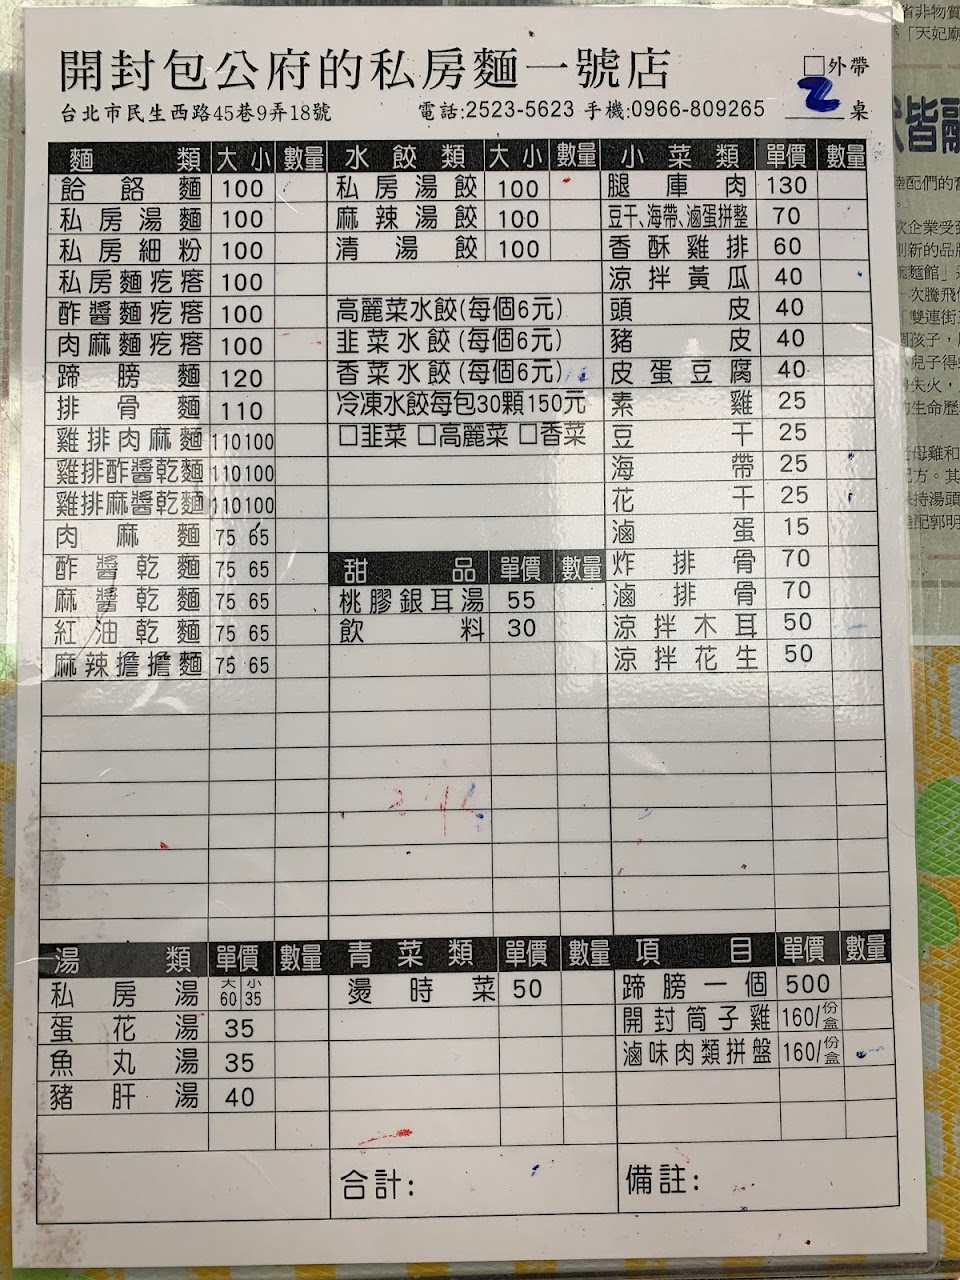 開封包公府的私房麵一號店
□外帶
台北市民生西路45巷9弄18號 電話:2523-5623 手機:0966-809265 2 桌
麵類 大 小 數量 水餃類 大 小 數量 小菜類 單價 數量
餄餎麵 100 私房湯餃 100 腿庫肉 130
私房湯麵 100 麻辣湯餃 100 豆干、海帶、滷蛋拼整 70
私房細粉 100 清湯餃 100 香酥雞排 60
私房麵疙瘩 100 涼拌黃瓜 40
酢醬麵疙瘩 100 高麗菜水餃(每個6元) 頭皮 40
肉麻麵疙瘩 100 韭菜水餃(每個6元) 豬皮 40
蹄膀麵 120 香菜水餃(每個6元) 皮蛋豆腐 40
排骨麵 110 冷凍水餃每包30顆150元 素雞 25
雞排肉麻麵 110 100 □韭菜 □高麗菜 □香菜 豆干 25
雞排酢醬乾麵 110 100 海帶 25
雞排麻醬乾麵 110 100 花干 25
肉麻麵 75 65 滷蛋 15
酢醬乾麵 75 65 甜品 單價 數量 炸排骨 70
麻醬乾麵 75 65 桃膠銀耳湯 55 滷排骨 70
紅油乾麵 75 65 飲料 30 涼拌木耳 50
麻辣擔擔麵 75 65 涼拌花生 50
湯類 單價 數量 青菜類 單價 數量 項目 單價 數量
私房湯 大60 小35 燙時菜 50 蹄膀一個 500
蛋花湯 35 開封筒子雞 160/份盒
魚丸湯 35 滷味肉類拼盤 160/份盒
豬肝湯 40
合計: 備註: